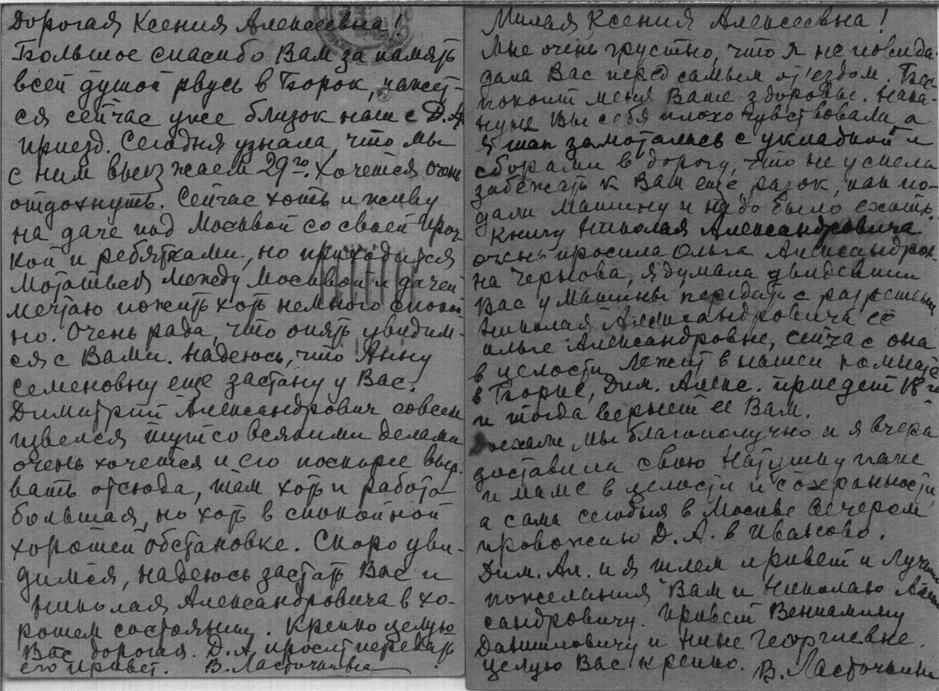 Дорогая Ксения Алексеевна!
Большое спасибо Вам за память
всей душой рвусь в Борок, кажет-
ся сейчас уже близок наш с Д.А.
приезд. Сегодня узнала, что мы
с ним выезжаем 29го. Хочется очень
отдохнуть. Сейчас хоть и живу
на даче под Москвой со своей
кой и ребятками, но приходится
мотаться между Москвой и дачей
мечтаю пожить хоть немного спокой-
но. Очень рада, что опять увидим-
ся с Вами. Надеюсь, что Анну
Семеновну еще застану у Вас.
Димитрий Александрович совсем
извелся тут со всякими делами
очень хочется и его поскорее выр-
вать отсюда, там хоть и работа
большая, но хоть в спокойной
хорошей обстановке. Скоро уви-
димся, надеюсь застать Вас и
Николая Александровича в хо-
рошем состоянии. Крепко целую
Вас дорогая. Д.А. просит передать
его привет. В. Ласточкина
Милая Ксения Алексеевна!
Мне очень грустно, что я не повида-
дала Вас перед самым от'ездом. Бес-
покоит меня Ваше здоровье. Нака-
нуне Вы себя плохо чувствовали, а
я так замоталась с укладкой и
сборами в дорогу, что не успела
забежать к Вам еще разок, как по-
дали машину и надо было ехать.
Книгу Николая Александровича
очень просила Ольга Александров-
на Чернова, я думала увидевши
Вас у машины передать с разрешения
Николая Александровича её
Ольге Александровне, сейчас она
в целости лежит в нашей комнате
в Борке, Дим. Алекс. приедет 18го
и тогда вернет её Вам.
Доехали мы благополучно и я вчера
доставила свою Натушку папе
и маме в целости и сохранности,
а сама сегодня в Москве вечером
провожаю Д.А. в Иваново.
Дим. Ал. и я шлем привет и лучшие
пожелания Вам и Николаю Алек-
сандровичу. Привет Вениамину
Данииловичу и Нине Георгиевне.
Целую Вас крепко. В. Ласточкина